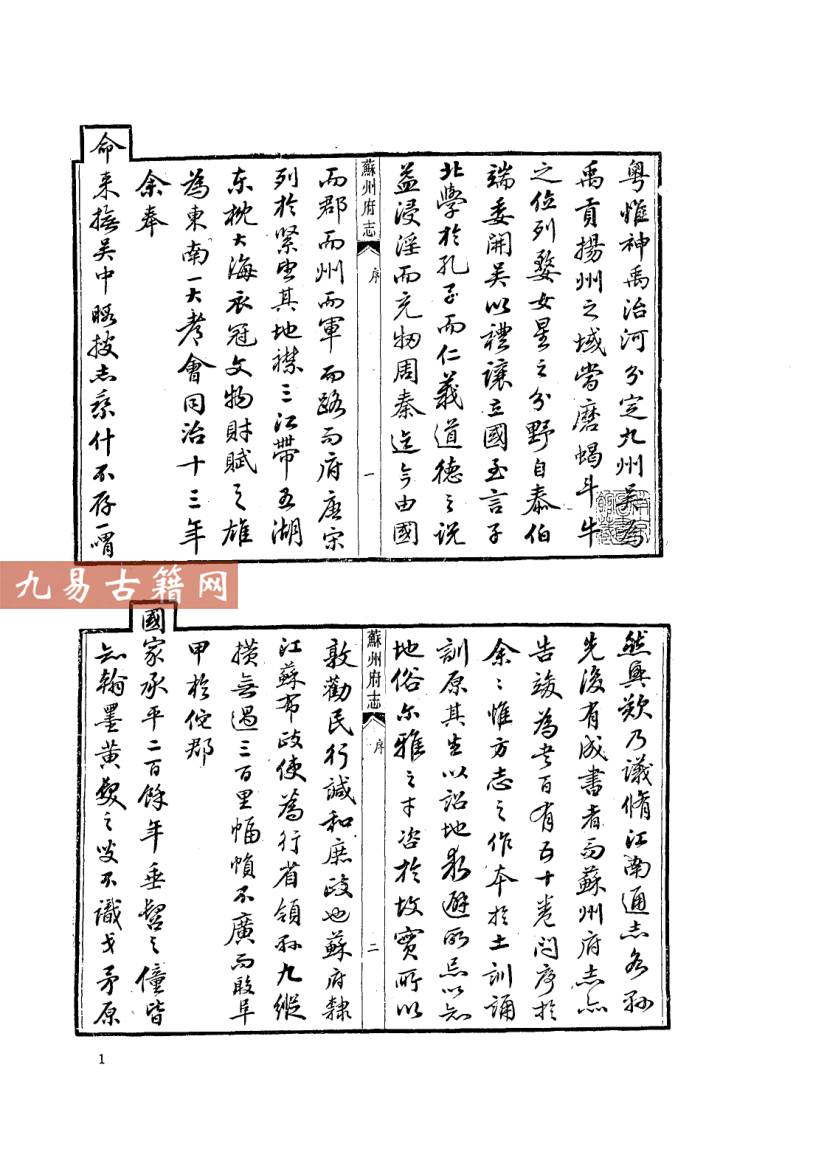 粤惟神禹治河分定九州吴為
禹貢揚州之域當磨蝎斗牛
之位列婺女星之分野自泰伯
端委開吴以禮讓立國至言子
北學於孔子而仁義道德之説
益浸淫而充牣周秦迄今由國
蘇州府志
序
一
而郡而州而軍而路而府唐宋
列於緊望其地襟三江帶五湖
東枕大海衣冠文物財賦之雄
為東南一大都會同治十三年
余奉
命來撫吴中暇披志乘什不存一喟
九易古籍网
然興歎乃議脩江南通志各郡
先後有成書者而蘇州府志亦
告竣為書百有五十卷問序於
余余惟方志之作本於土訓誦
訓原其生以詔地求避所忌以知
地俗尔雅之才咨於故實所以
蘇州府志
序
二
敦勸民行諴和庶政也蘇府隸
江蘇布政使為行省領縣九縱
横無過三百里幅幀不廣而殷阜
甲於他郡
國家承平二百餘年垂髫之僮皆
知翰墨黄髮之叟不識戈矛原
1